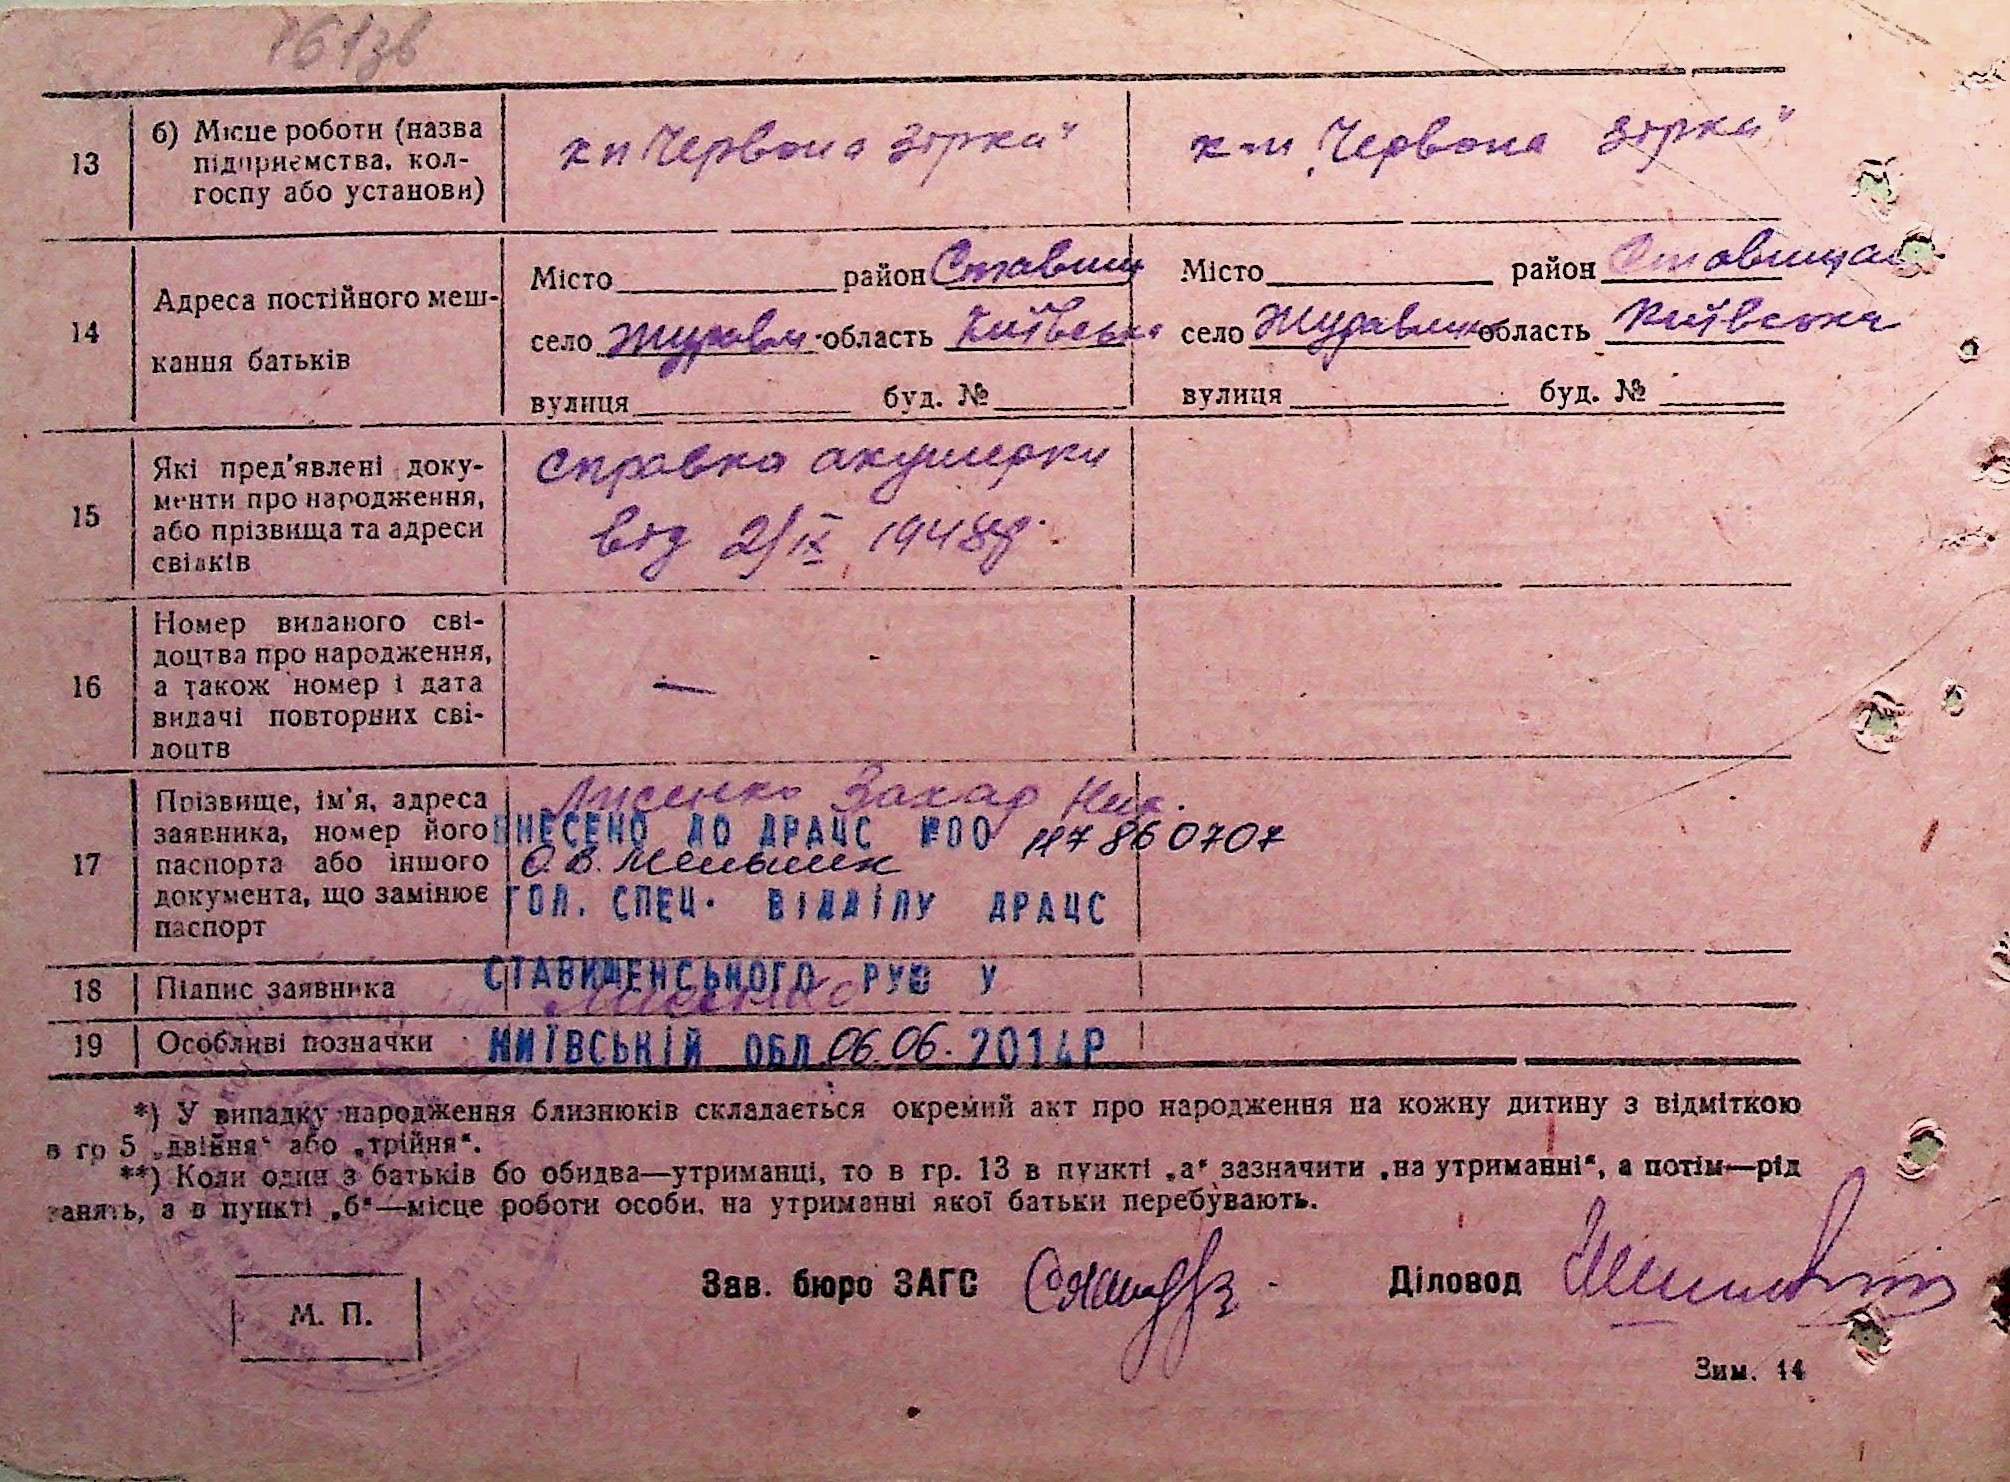 161зв
13
б) Місце роботи (назва
підприємства, кол-
госпу або установи)
к п Червона зірка"
к-п „Червона зірка"
14
Адреса постійного меш-
кання батьків
Місто район Ставищ
село Журавл. область Київська
вулиця буд. №
Місто район Ставищан
село Журавлих область Київська
вулиця буд. №
15
Які пред'явлені доку-
менти про народження,
або прізвища та адреси
свідків
справка акушерки
від 2/IX 1948р.
16
Номер виданого сві-
доцтва про народження,
а також номер і дата
видачі повторних сві-
доцтв
—
17
Прізвище, ім'я, адреса
заявника, номер його
паспорта або іншого
документа, що замінює
паспорт
Лисенко Захар Ник.
ВНЕСЕНО ДО ДРАЦС №00 117860707
О.В. Меньшик
ГОЛ. СПЕЦ. ВІДДІЛУ ДРАЦС
18
Підпис заявника
СТАВИЩЕНСЬКОГО РУЮ У
Лисенко
19
Особливі позначки
КИЇВСЬКІЙ ОБЛ 06.06.2014Р
*) У випадку народження близнюків складається окремий акт про народження на кожну дитину з відміткою
в гр 5 „двійня“ або „трійня“.
**) Коли один з батьків бо обидва—утриманці, то в гр. 13 в пункті „а“ зазначити „на утриманні“, а потім—рід
занять, а в пункті „б“—місце роботи особи, на утриманні якої батьки перебувають.
М. П.
Зав. бюро ЗАГС
Діловод
Зим. 14